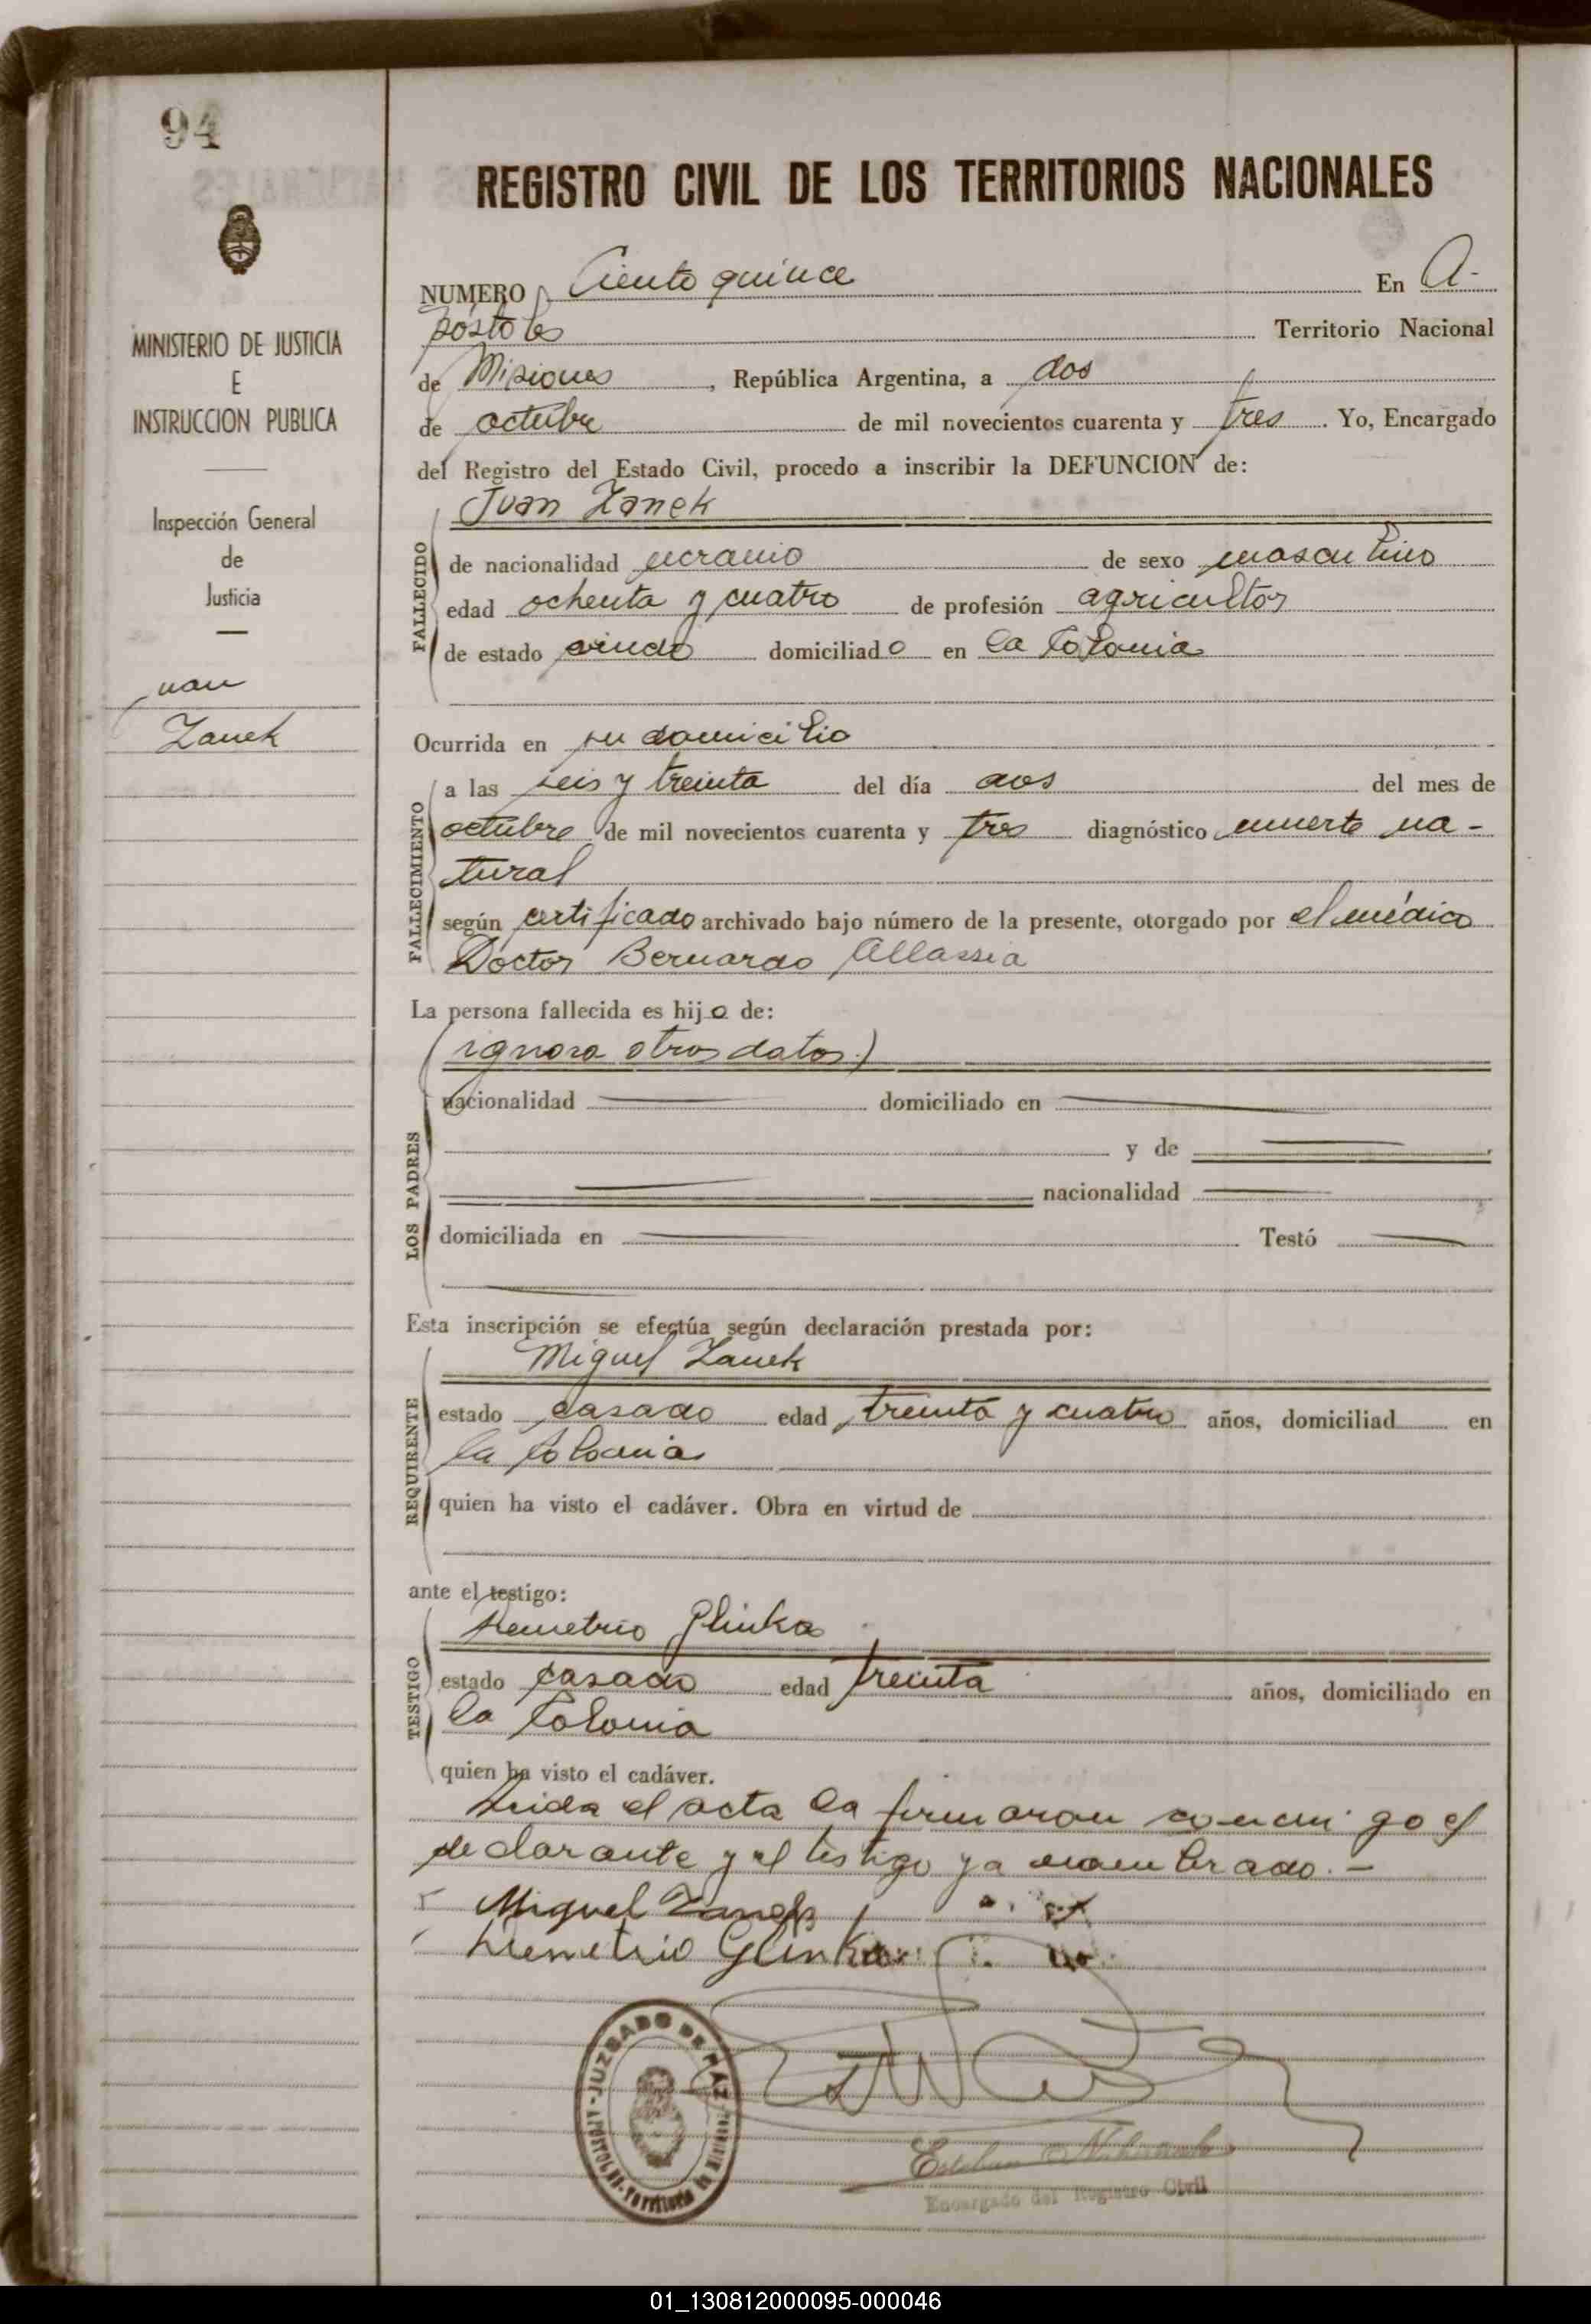 94
REGISTRO CIVIL DE LOS TERRITORIOS NACIONALES
MINISTERIO DE JUSTICIA
E
INSTRUCCION PUBLICA
Inspección General
de
Justicia
Juan
Zanek
NUMERO Ciento quince En A-
póstoles Territorio Nacional
de Misiones, República Argentina, a dos
de octubre de mil novecientos cuarenta y tres. Yo, Encargado
del Registro del Estado Civil, procedo a inscribir la DEFUNCION de:
Juan Zanek
FALLECIDO
de nacionalidad ucranio de sexo masculino
edad ochenta y cuatro de profesión agricultor
de estado viudo domiciliado en la Colonia
Ocurrida en su domicilio
FALLECIMIENTO
a las seis y treinta del día dos del mes de
octubre de mil novecientos cuarenta y tres diagnóstico muerte na-
tural
según certificado archivado bajo número de la presente, otorgado por el médico
Doctor Bernardo Allassia
La persona fallecida es hijo de:
(ignora otros datos.)
LOS PADRES
nacionalidad domiciliado en
y de
nacionalidad
domiciliada en Testó
Esta inscripción se efectúa según declaración prestada por:
Miguel Zanek
REQUIRENTE
estado casado edad treinta y cuatro años, domiciliad en
la Colonia
quien ha visto el cadáver. Obra en virtud de
ante el testigo:
Demetrio Glinka
TESTIGO
estado casado edad treinta años, domiciliado en
la Colonia
quien ha visto el cadáver.
Leida el acta la firmaron conmigo el
declarante y el testigo ya nombrado.-
Miguel Zanek
Demetrio Glinka
JUZGADO DE PAZ
APOSTOLES - Territorio de Misiones
Esteban
Encargado del Registro Civil
01_130812000095-000046